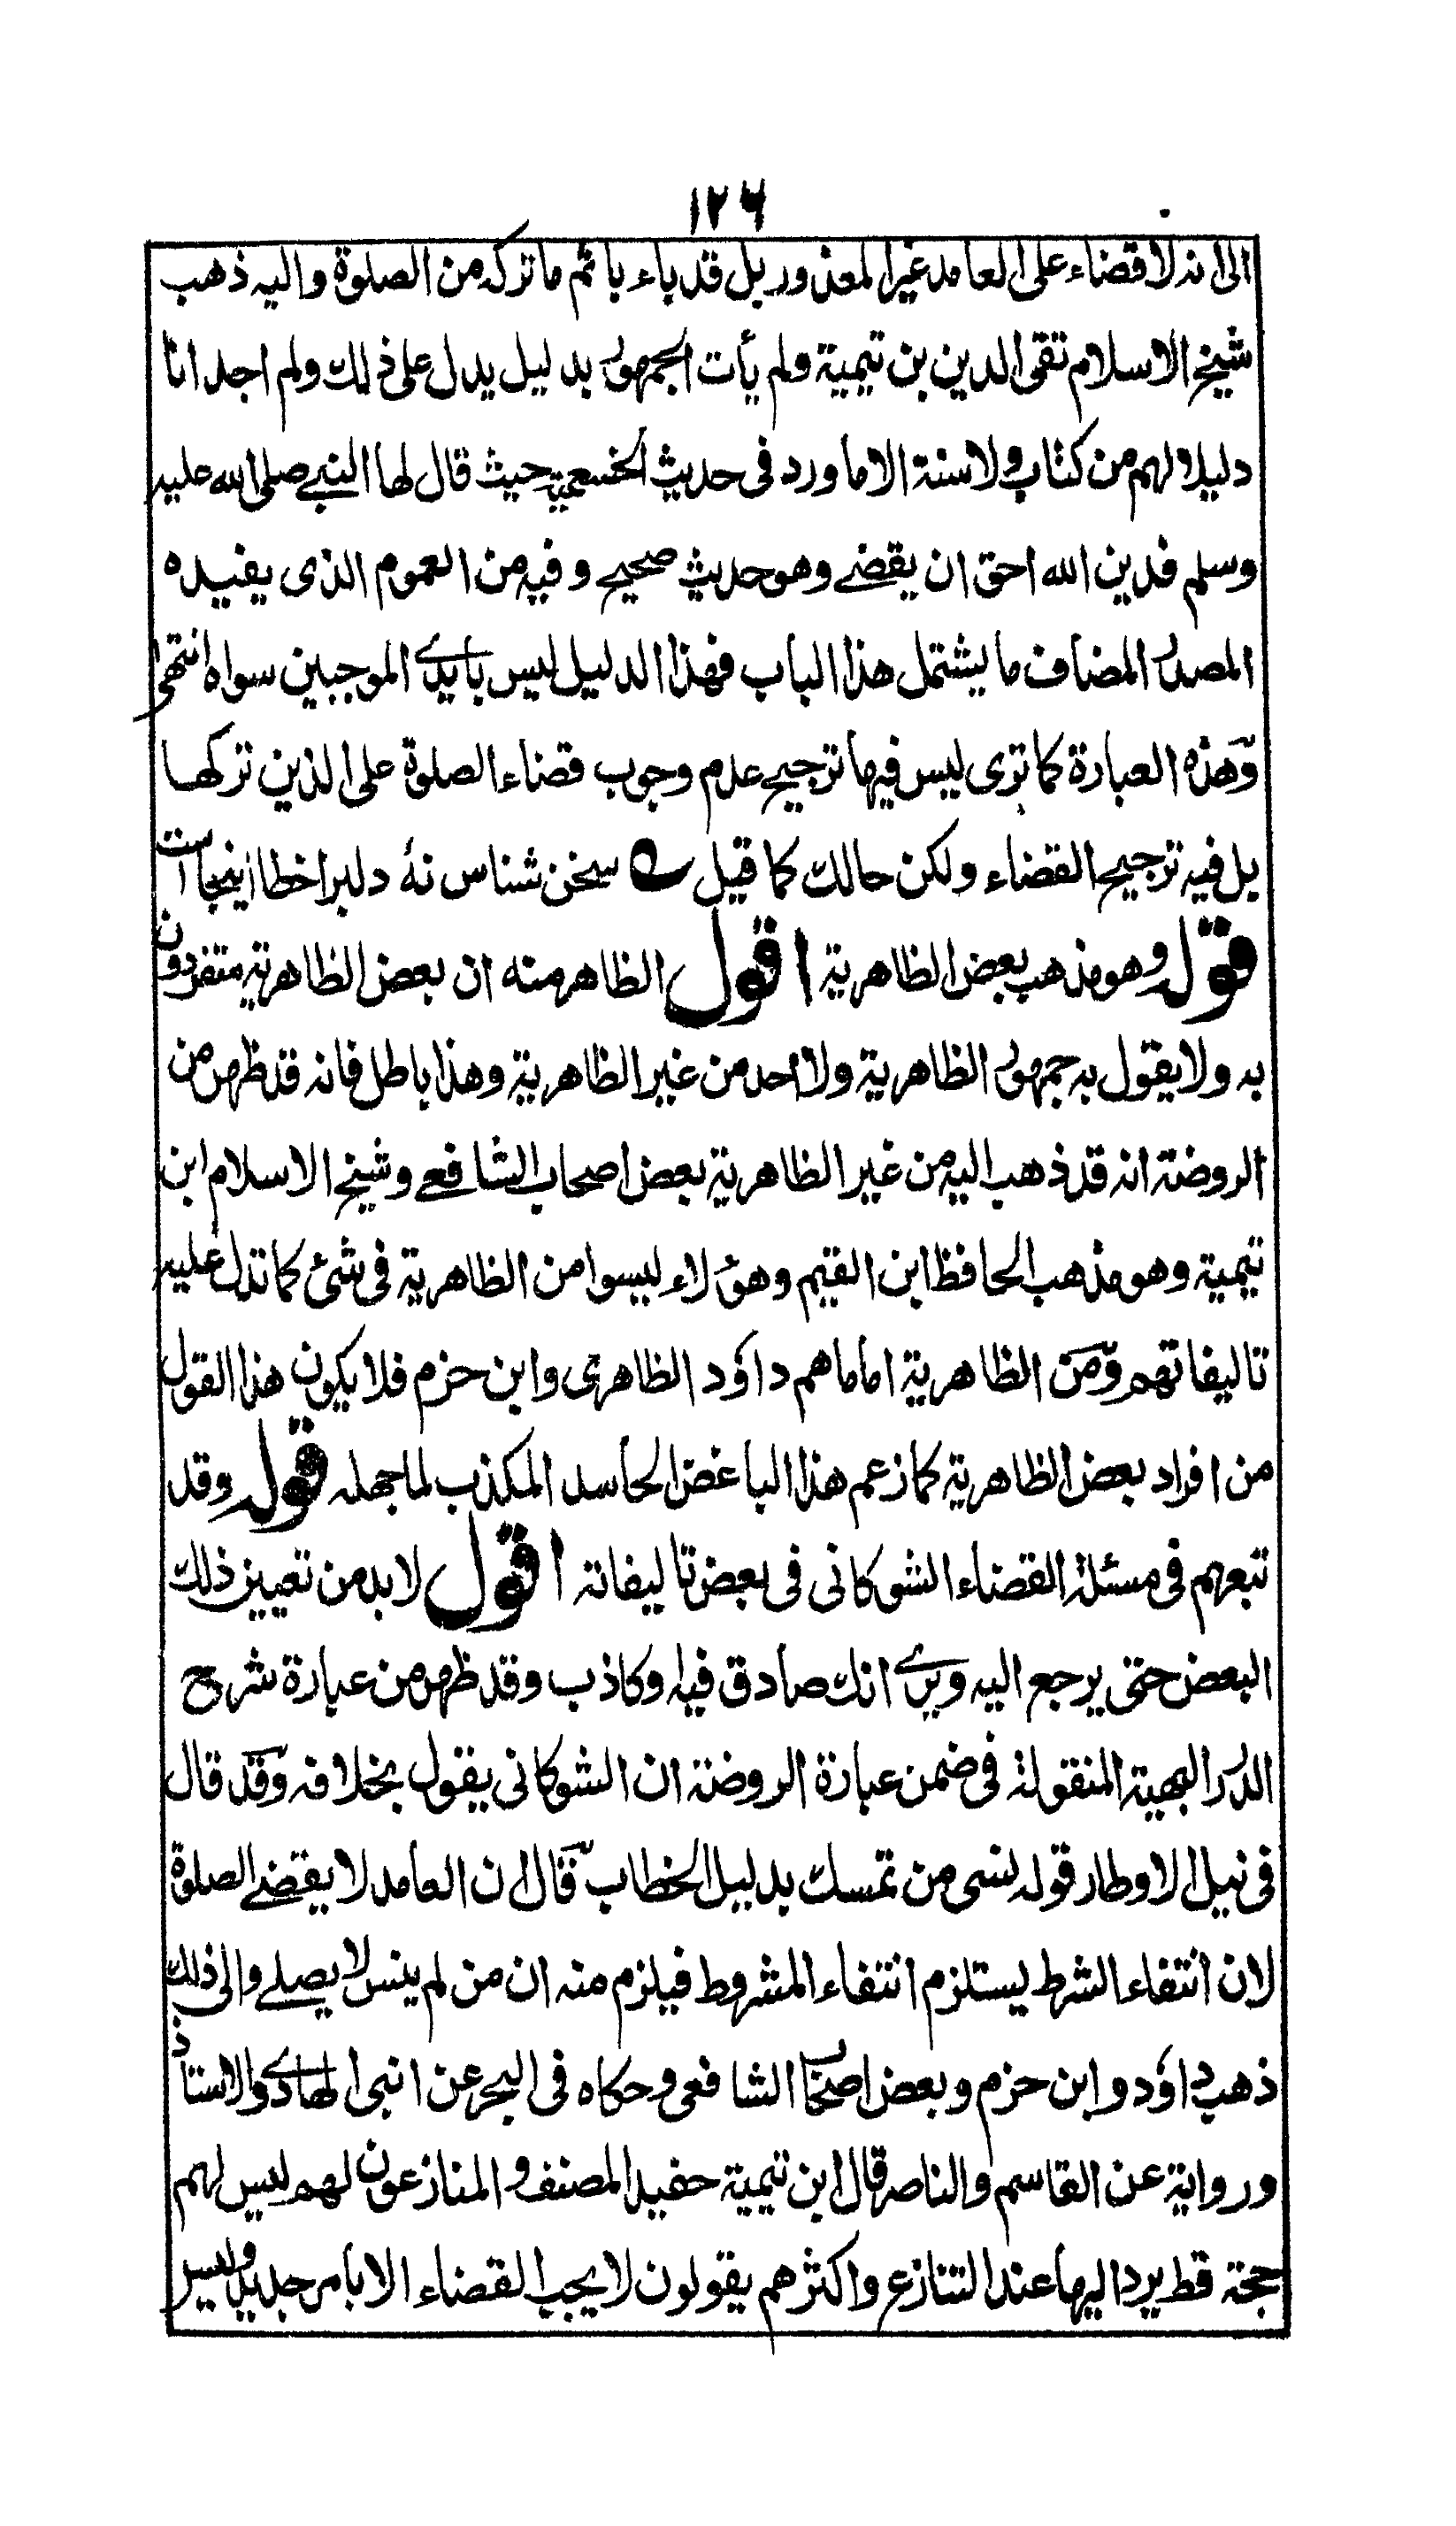 ١٢٦
الى انه لا قضاء على العامد غير المعذور بل قد باء باثم ما تركه من الصلوة واليه ذهب
شيخ الاسلام تقى الدين بن تيمية ولم يأت الجمهور بدليل يدل على ذلك ولم اجد انا
دليلا لهم من كتاب ولا سنة الا ما ورد فى حديث الخسعمية حيث قال لها النبي صلى الله عليه
وسلم فدين الله احق ان يقضے وهو حديث صحيح وفيه من العموم الذى يفيده
المصدر المضاف ما يشتمل هذا الباب فهذا الدليل ليس بايدے الموجبين سواه انتهى
وهذه العبارة كما ترى ليس فيها ترجيح عدم وجوب قضاء الصلوة على الذين تركها
بل فيه ترجيح القضاء ولكن حالك كما قيل سخن شناس نهٔ دلبرا خطا اينجا است
قوله وهو مذهب بعض الظاهرية اقول الظاهر منه ان بعض الظاهرية متفردون
به ولا يقول به جمهور الظاهرية ولا احد من غير الظاهرية وهذا باطل فانه قد ظهر من
الروضة انه قد ذهب اليه من غير الظاهرية بعض اصحاب الشافعے وشيخ الاسلام ابن
تيمية وهو مذهب الحافظ ابن القيم وهؤلاء ليسوا من الظاهرية فى شئ كما تدل عليه
تاليفاتهم ومن الظاهرية اماماهم داؤد الظاهرى وابن حزم فلا يكون هذا القول
من افراد بعض الظاهرية كما زعم هذا الباغض الحاسد المكذب لما جهله قوله وقد
تبعهم فى مسئلة القضاء الشوكانى فى بعض تاليفاته اقول لا بد من تعيين ذلك
البعض حتى يرجع اليه ويرے انك صادق فيه او كاذب وقد ظهر من عبارة شرح
الدرر البهية المنقولة فى ضمن عبارة الروضة ان الشوكانى يقول بخلافه وقد قال
فى نيل الاوطار قوله نسى من تمسك بدليل الخطاب قال ان العامد لا يقضے الصلوة
لان انتفاء الشرط يستلزم انتفاء المشروط فيلزم منه ان من لم ينس لا يصلے والى ذلك
ذهب داؤد وابن حزم وبعض اصحاب الشافعى وحكاه فى البحر عن ابنى الهادے والاستاذ
ورواية عن القاسم والناصر قال ابن تيمية حفيد المصنف والمنازعون لهم ليس لهم
حجة قط يرد اليها عند التنازع واكثرهم يقولون لا يجب القضاء الا بامر جديد وليس